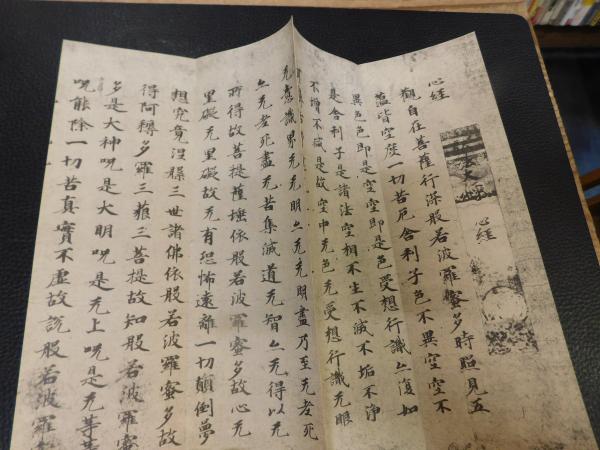 心経
心経
觀自在菩薩行深般若波羅蜜多時照見五
蘊皆空度一切苦厄舍利子色不異空空不
異色色即是空空即是色受想行識亦復如
是舍利子是諸法空相不生不滅不垢不淨
不增不減是故空中无色无受想行識无眼
无意識界无无明亦无无明盡乃至无老死
亦无老死盡无苦集滅道无智亦无得以无
所得故菩提薩埵依般若波羅蜜多故心无
罣礙无罣礙故无有恐怖遠離一切顛倒夢
想究竟涅槃三世諸佛依般若波羅蜜多故
得阿耨多羅三藐三菩提故知般若波羅蜜
多是大神呪是大明呪是无上呪是无等等
呪能除一切苦真實不虛故說般若波羅